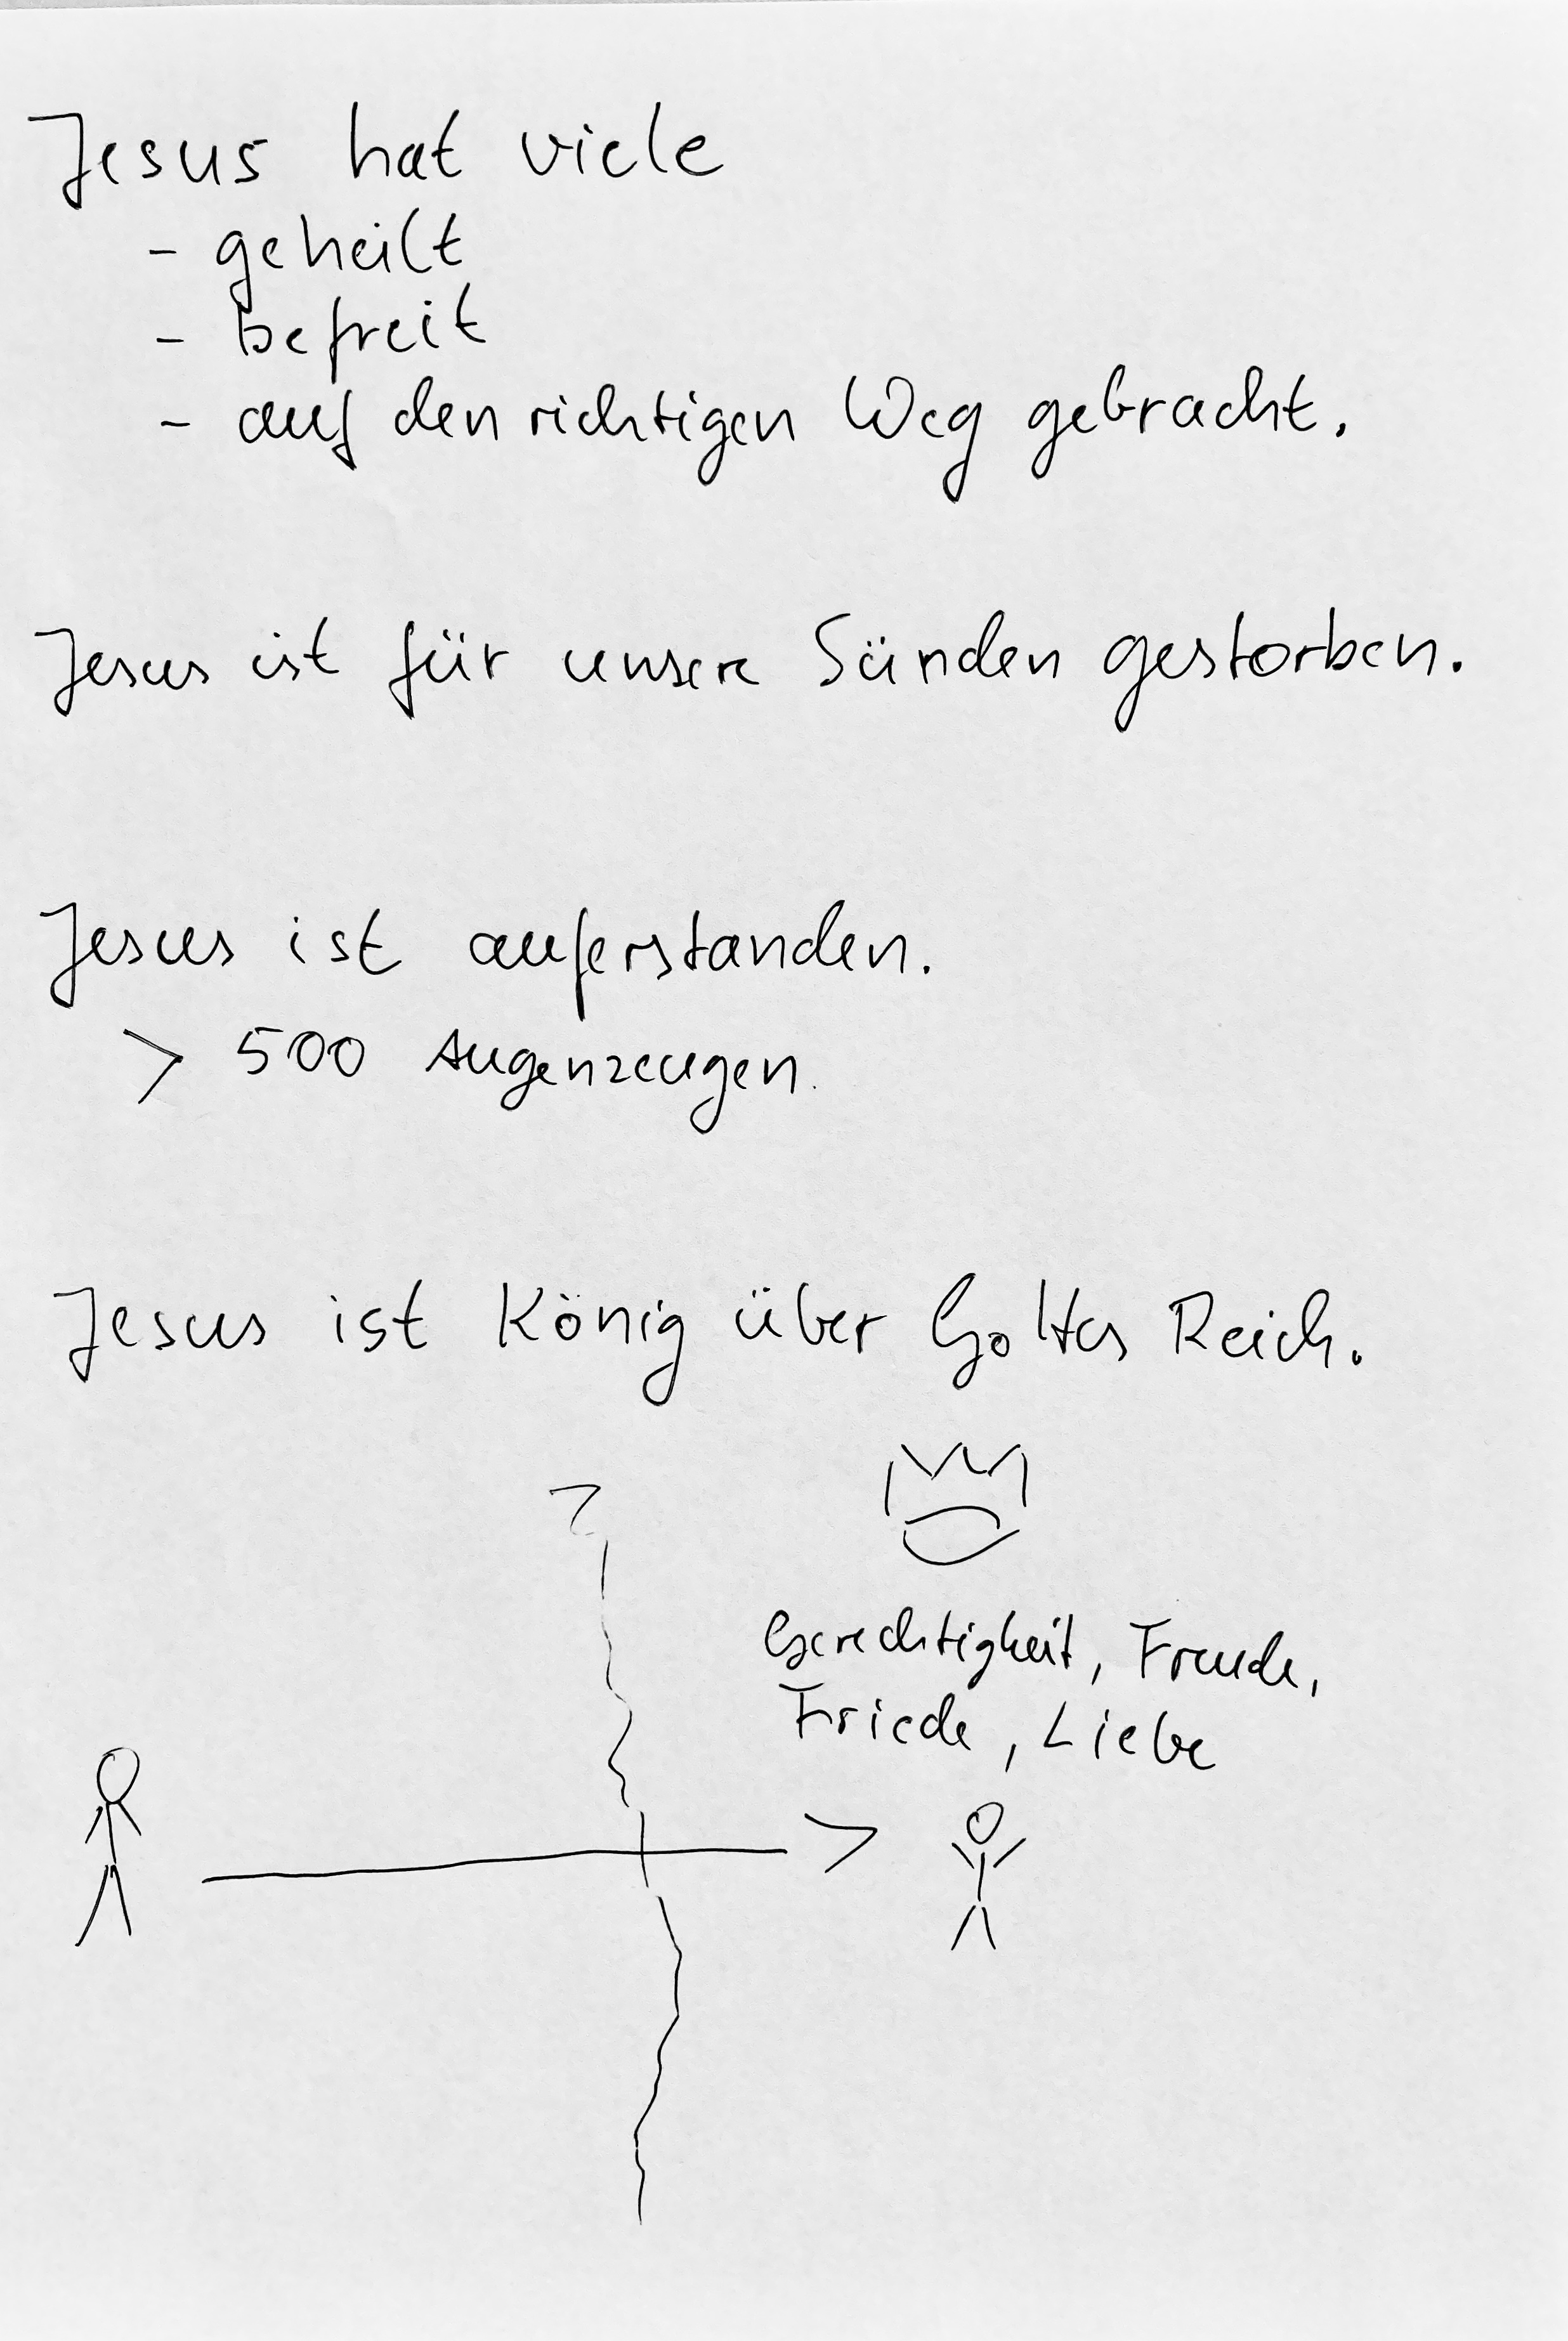 Jesus hat viele
- geheilt
- befreit
- auf den richtigen Weg gebracht.
Jesus ist für unsere Sünden gestorben.
Jesus ist auferstanden.
> 500 Augenzeugen.
Jesus ist König über Gottes Reich.
Gerechtigkeit, Freude,
Friede, Liebe